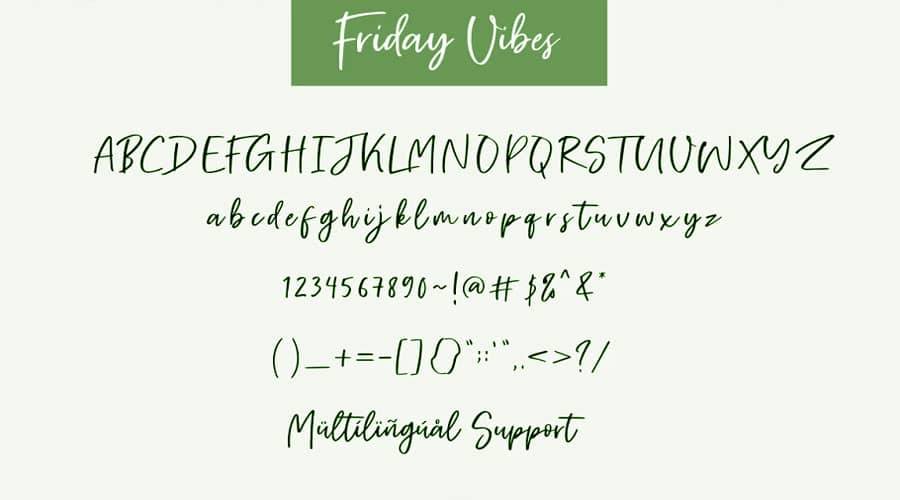 Friday Vibes
ABCDEFGHIJKLMNOPQRSTUVWXYZ
abcdefghijklmnopqrstuvwxyz
1234567890~!@#$%^&*
()_+=-[]{}“;:'",.<>?/
Mültilïñgúål Support